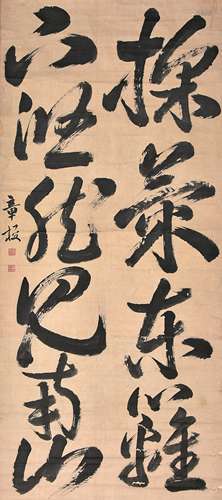 採菊东篱
下悠然见南山
章授